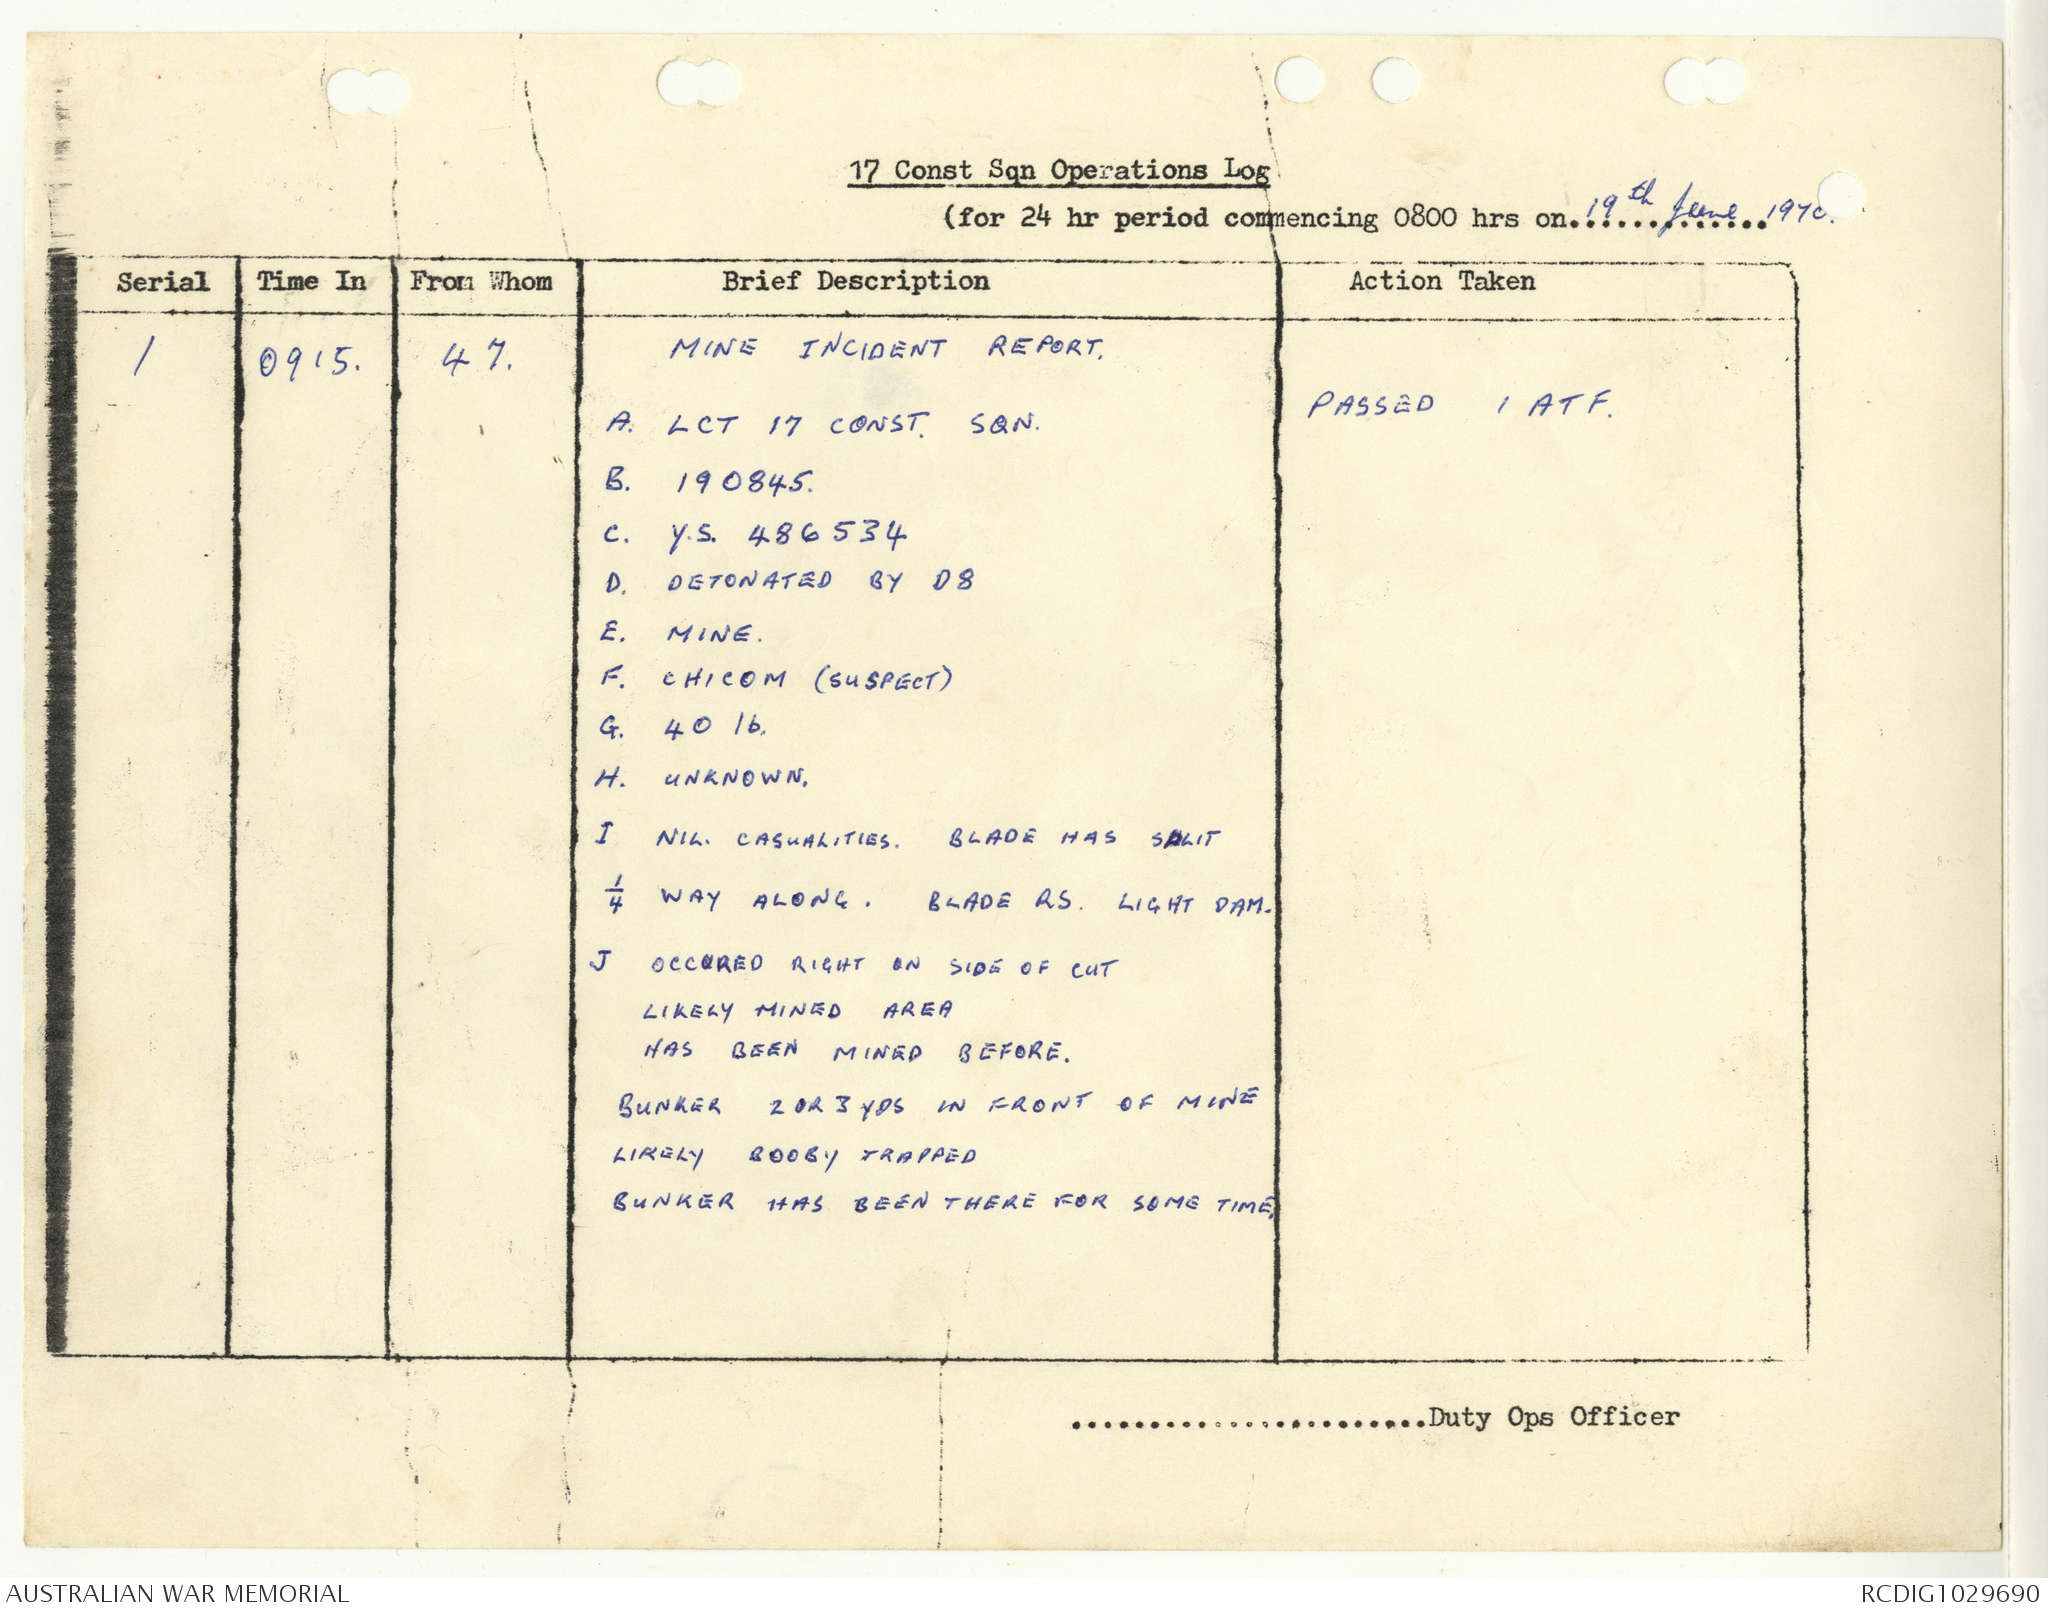 17 Const Sqn Operations Log
(for 24 hr period commencing 0800 hrs on..19th June 1970.
Serial Time In From Whom Brief Description Action Taken
1 0915. 47. MINE INCIDENT REPORT.
PASSED 1 ATF.
A. LCT 17 CONST. SQN.
B. 190845.
C. Y.S. 486534
D. DETONATED BY D8
E. MINE.
F. CHICOM (SUSPECT)
G. 40 lb.
H. UNKNOWN.
I NIL. CASUALITIES. BLADE HAS SPLIT
1/4 WAY ALONG. BLADE RS. LIGHT DAM.
J OCCURED RIGHT ON SIDE OF CUT
LIKELY MINED AREA
HAS BEEN MINED BEFORE.
BUNKER 2 OR 3 YDS IN FRONT OF MINE
LIKELY BOOBY TRAPPED
BUNKER HAS BEEN THERE FOR SOME TIME.
.......................Duty Ops Officer
AUSTRALIAN WAR MEMORIAL
RCDIG1029690